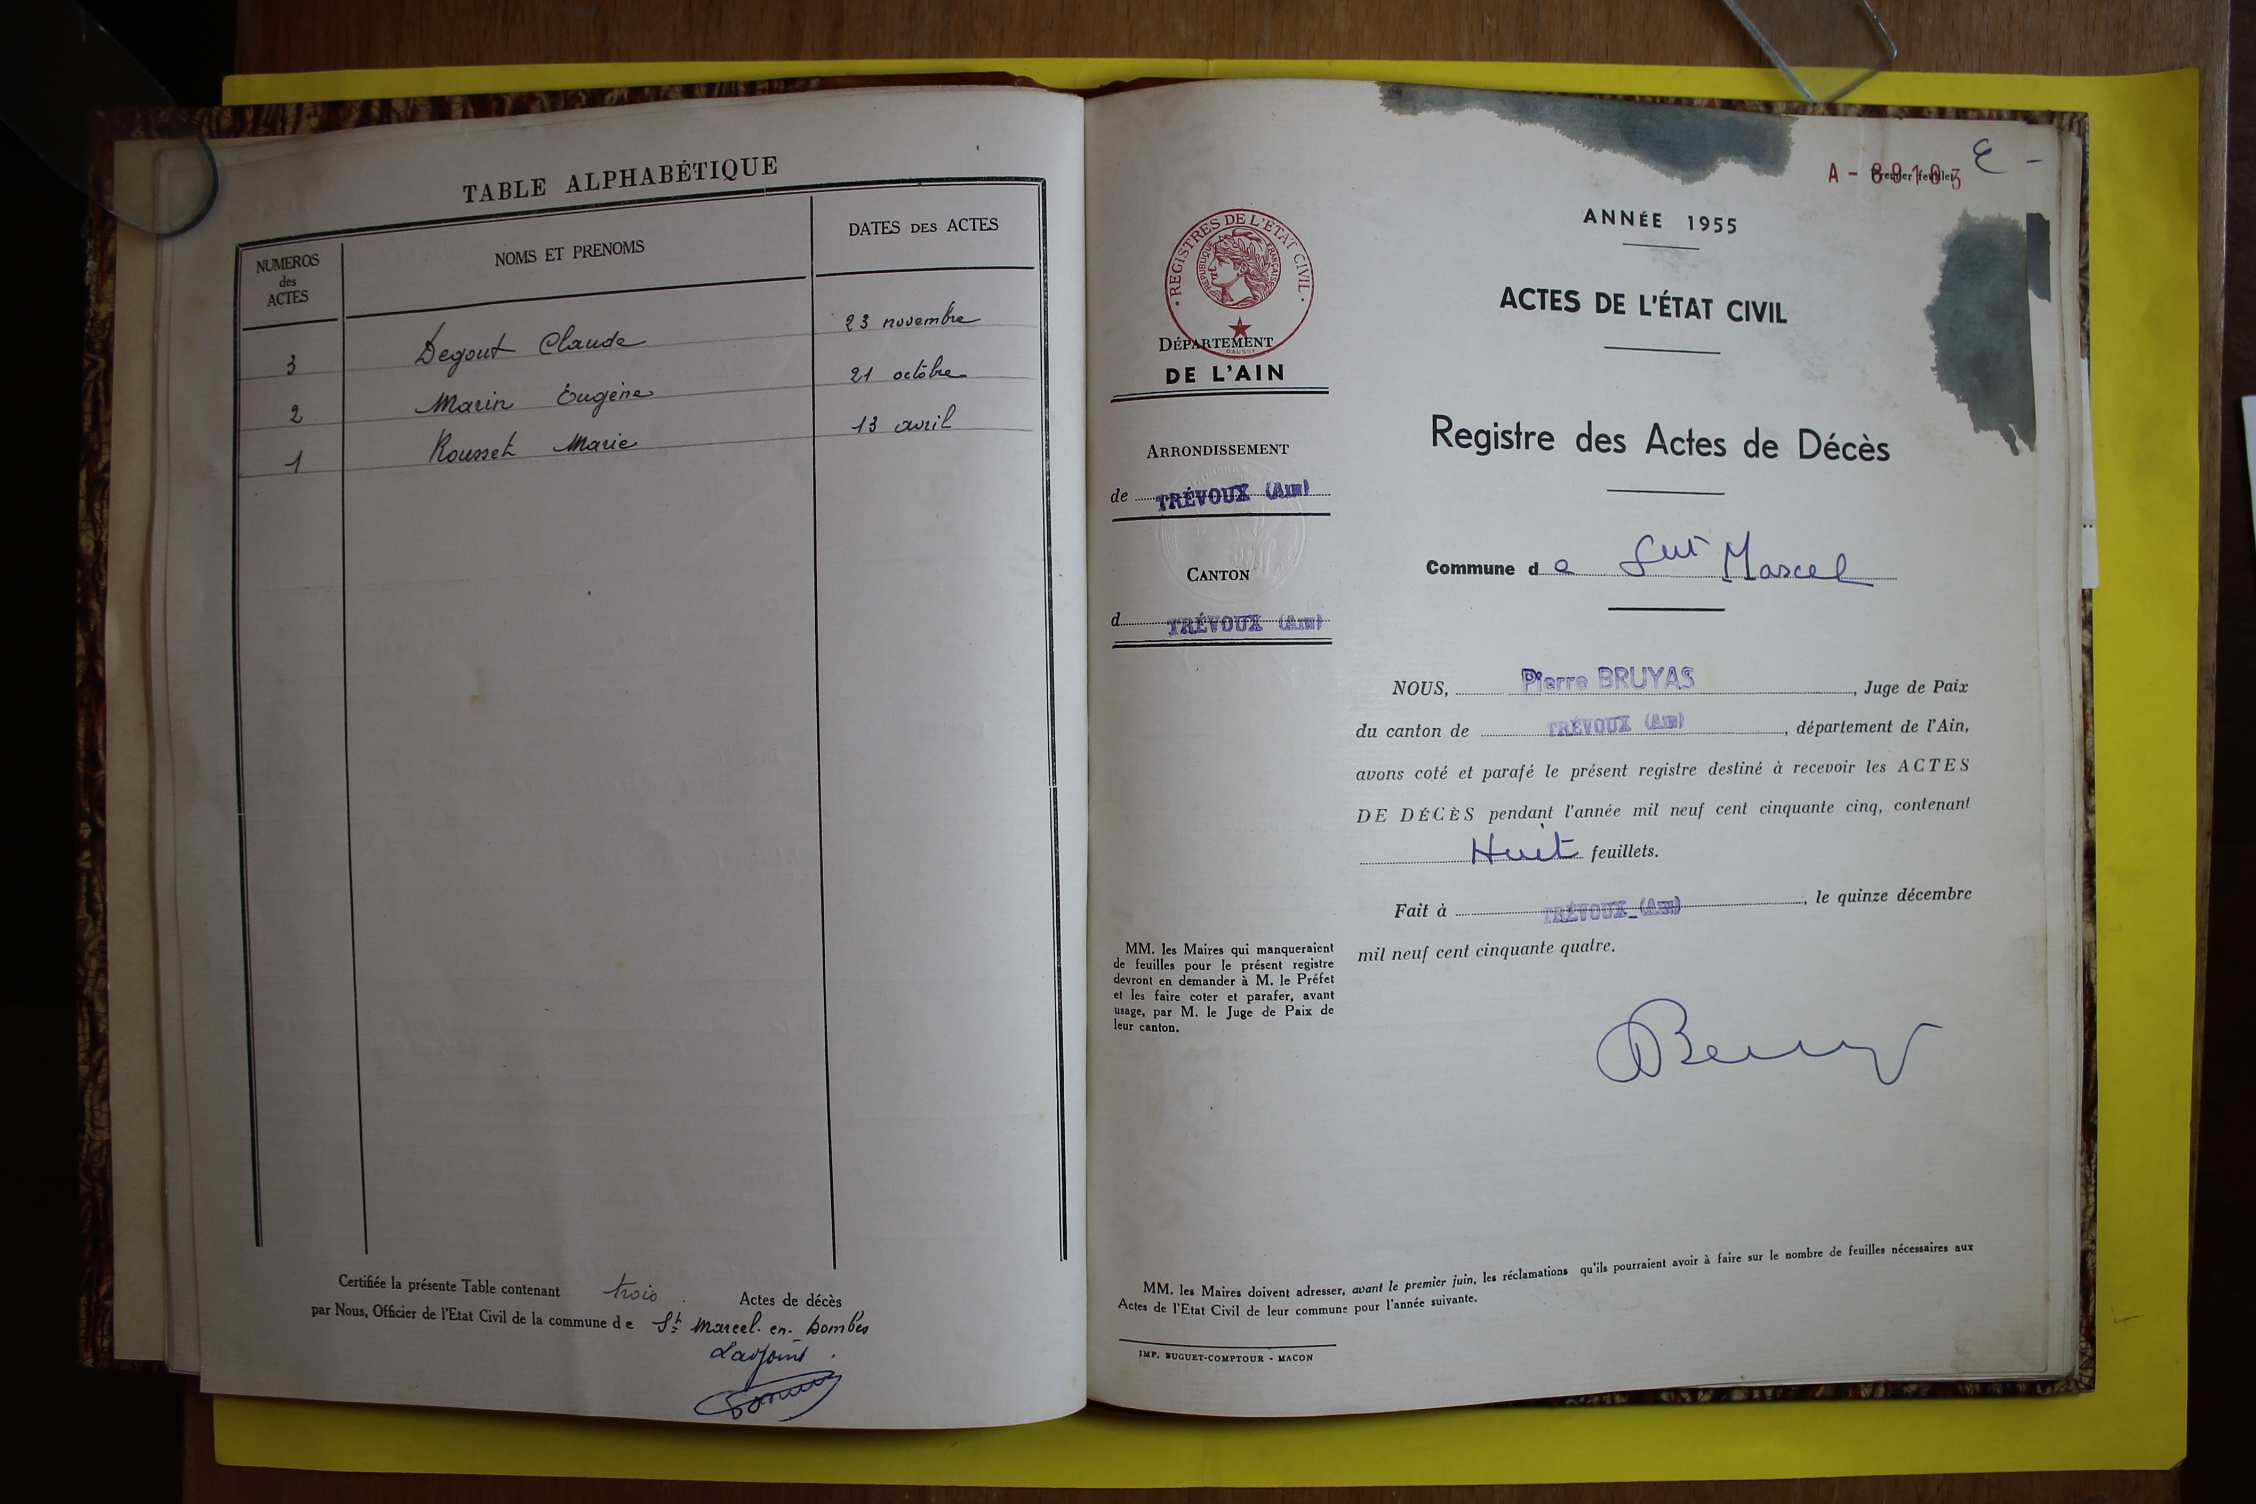 TABLE ALPHABÉTIQUE
NUMEROS des ACTES
NOMS ET PRENOMS
DATES DES ACTES
3 Degout Claude 23 novembre
2 Marin Eugène 21 octobre
1 Rousset Marie 13 avril
Certifiée la présente Table contenant trois Actes de décès
par Nous, Officier de l'Etat Civil de la commune de St Marcel-en-Dombes
L'adjoint.
Premier feuillet
ANNÉE 1955
ACTES DE L'ÉTAT CIVIL
Registre des Actes de Décès
Commune de Saint Marcel
REGISTRES DE L'ÉTAT CIVIL
RÉPUBLIQUE FRANÇAISE
DÉPARTEMENT
DE L'AIN
ARRONDISSEMENT
de TRÉVOUX (Ain)
CANTON
d TRÉVOUX (Ain)
NOUS, Pierre BRUYAS, Juge de Paix
du canton de TRÉVOUX (Ain), département de l'Ain,
avons coté et parafé le présent registre destiné à recevoir les ACTES
DE DÉCÈS pendant l'année mil neuf cent cinquante cinq, contenant
Huit feuillets.
Fait à TRÉVOUX (Ain), le quinze décembre
mil neuf cent cinquante quatre.
MM. les Maires qui manqueraient
de feuilles pour le présent registre
devront en demander à M. le Préfet
et les faire coter et parafer, avant
usage, par M. le Juge de Paix de
leur canton.
MM. les Maires doivent adresser, avant le premier juin, les réclamations qu'ils pourraient avoir à faire sur le nombre de feuilles nécessaires aux
Actes de l'Etat Civil de leur commune pour l'année suivante.
IMP. BUGUET-COMPTOUR - MACON